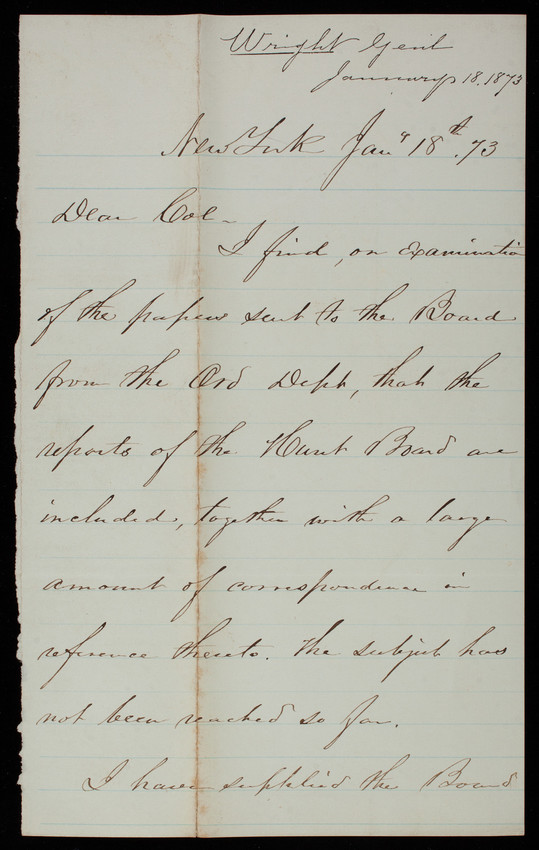 Wright Genl
January 18. 1873
New York Jany 18th. 73
Dear Col-
I find, on examination
of the papers sent to the Board
from the Ord Dept, that the
reports of the Hunt Board are
included, together with a large
amount of correspondence in
reference thereto. The subject has
not been reached so far.
I have supplied the Board